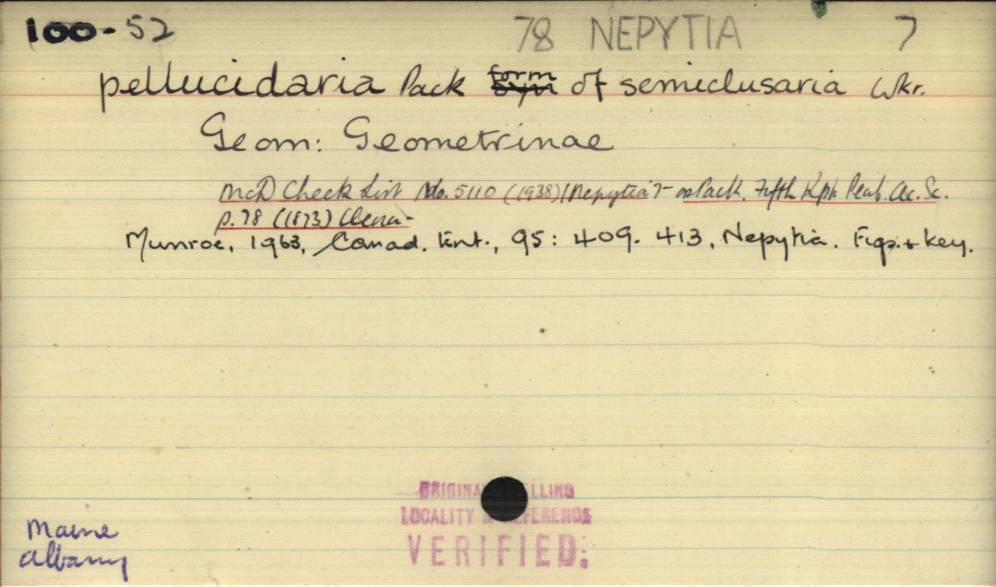 100-52 78 NEPYTIA 7
pellucidaria Pack form syn of semiclusaria Wkr.
Geom: Geometrinae
McD Check List No. 5110 (1938) / Nepytia ?- as Pack. Fifth Rpt. Peab. Ac. Sc.
p. 78 (1873)
Munroe, 1963, Canad. Ent., 95: 409-413, Nepytia. Figs. + key.
ORIGINAL SPELLING
LOCALITY & REFERENCE
VERIFIED.
Maine
Albany